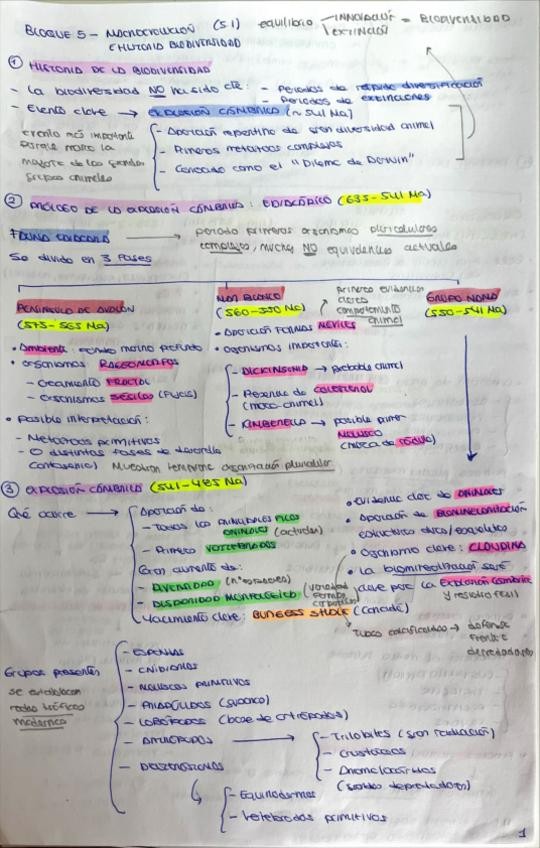 BLOQUE 5 – MACROEVOLUCIÓN (S1)
E HISTORIA BIODIVERSIDAD
equilibrio INNOVACIÓN EXTINCIÓN = BIODIVERSIDAD
① HISTORIA DE LA BIODIVERSIDAD
- La biodiversidad NO ha sido cte: - Periodos de rápida diversificación
- Periodos de extinciones
- Evento clave → EXPLOSIÓN CÁMBRICA (~541 Ma)
evento más importante
porque marca la
mayoría de los grandes
grupos animales
- Aparición repentina de gran diversidad animal
- Primeros metazoos complejos
- Conocido como el "Dilema de Darwin"
② PRÓLOGO DE LA EXPLOSIÓN CÁMBRICA: EDIACÁRICO (635-541 Ma)
FAUNA EDIACARA → periodo primeros organismos pluricelulares
complejos, muchos NO equivalencia actuales
Se divide en 3 fases
PENÍNSULA DE AVALÓN
(575-565 Ma)
• Ambiente: fondo marino profundo
• Organismos: RANGEOMORFOS
- Crecimiento FRACTAL
- Organismos SÉSILES (fijos)
• Posible interpretación:
- Metazoos primitivos
- O distintas fases de desarrollo
MAR BLANCO
(560-550 Ma)
primeras evidencias
claras
comportamiento
animal
• Aparición formas MÓVILES
• Organismos importantes:
- DICKINSONIA → probable animal
- Presencia de COLESTEROL
(marca animal)
- KIMBERELLA → posible primer
MOLUSCO
(marca de rádula)
GRUPO NAMA
(550-541 Ma)
• Evidencia clara de ANIMALES
• Aparición de BIOMINERALIZACIÓN
• Organismo clave: CLOUDINA
• La biomineralización será
clave para la Explosión Cámbrica
y registro fósil
Tubos calcificados → defensa
frente
depredadores
③ EXPLOSIÓN CÁMBRICA (541-485 Ma)
Qué ocurre → Aparición de:
- Todos los principales FILOS
ANIMALES (actuales)
- Primeros VERTEBRADOS
Gran aumento de:
- DIVERSIDAD (nº especies)
- DISPARIDAD MORFOLÓGICA (variedad
formas
corporales)
Yacimiento clave: BURGESS SHALE (Canadá)
Grupos presentes
se establecen
redes tróficas
modernas
- ESPONJAS
- CNIDARIOS
- MOLUSCOS PRIMITIVOS
- LOBÓPODOS (base de artrópodos)
- ARTRÓPODOS → - Trilobites (gran radiación)
- Crustáceos
- Anomalocáridos
(grandes depredadores)
- DEUTERÓSTOMOS
- Equinodermos
- Vertebrados primitivos
1